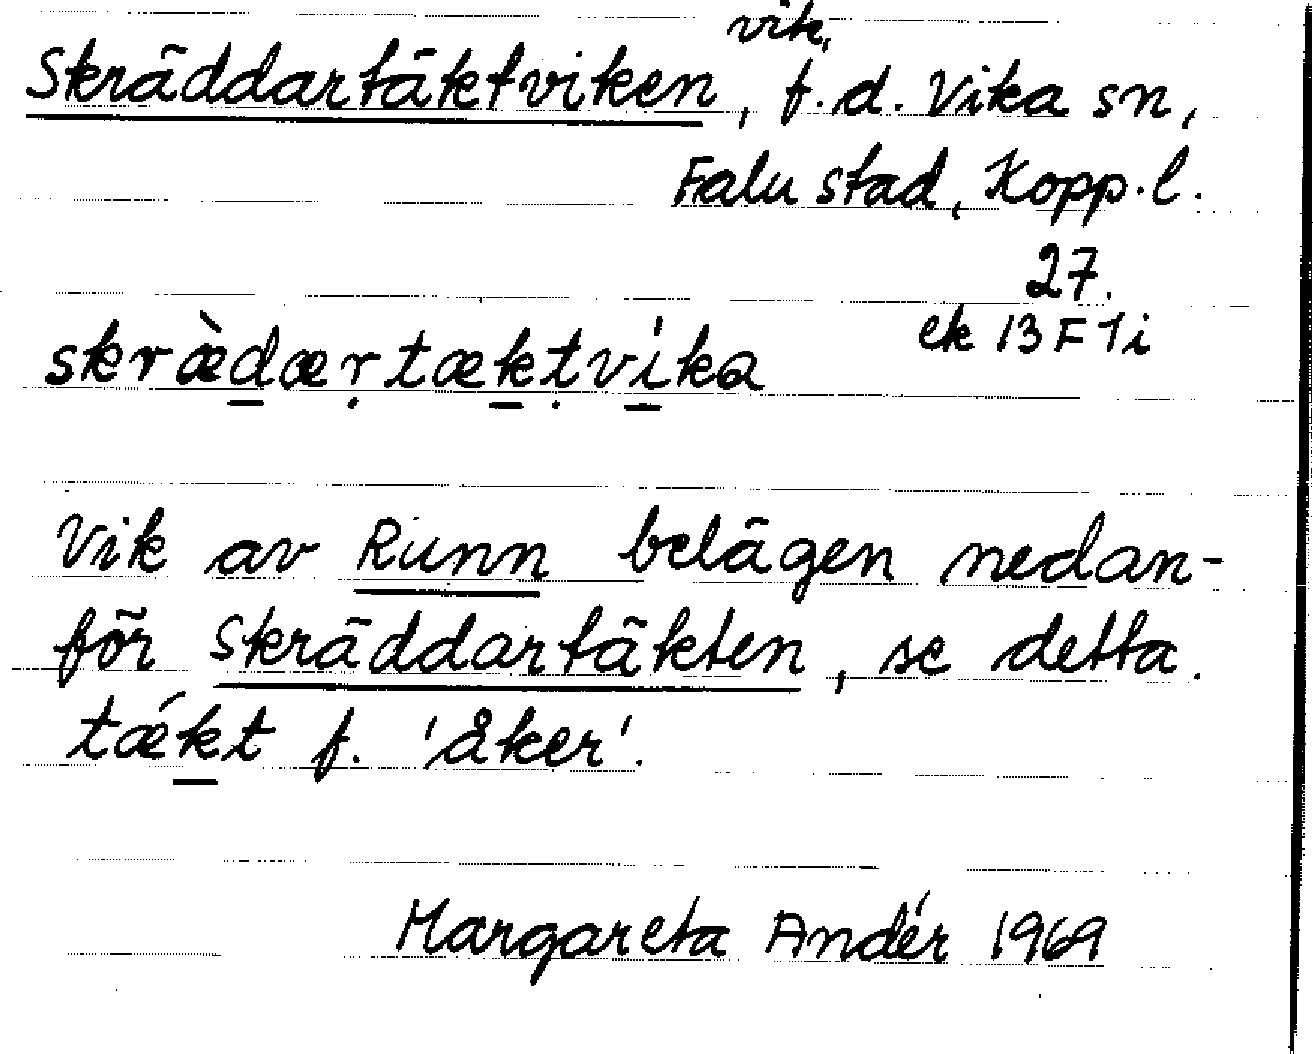 vik,
Skräddartäktviken, f.d. Vika sn,
Falu stad, Kopp.l.
27.
ek 13 F 1i
skræ̀d̲æṛtæk̲ṭví̲ka
Vik av Runn belägen nedan-
för Skräddartäkten, se detta.
tæ´k̲t f. 'åker'.
Margareta Andér 1969